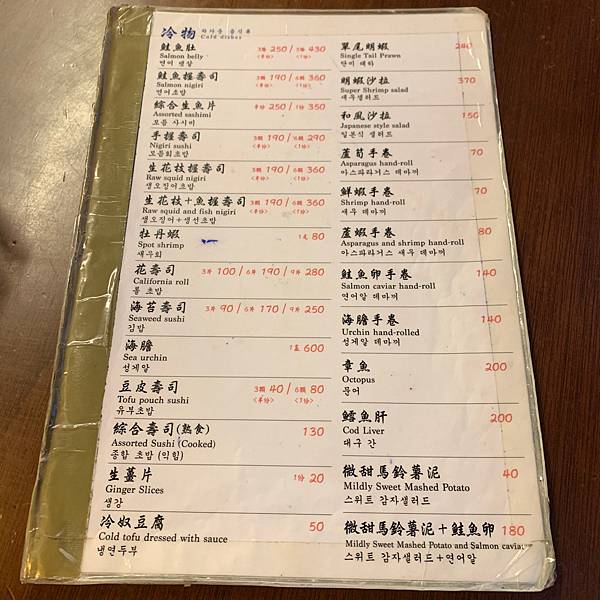 冷物 차가운 음식류
Cold dishes
鮭魚肚 3片 250 / 5片 430
Salmon belly <半份> <1份>
연어 뱃살
鮭魚握壽司 3顆 190 / 6顆 360
Salmon nigiri <半份> <1份>
연어초밥
綜合生魚片 半份 250 / 1份 350
Assorted sashimi
모듬 사시미
手握壽司 3顆 190 / 6顆 290
Nigiri sushi <半份> <1份>
모듬회초밥
生花枝握壽司 3顆 190 / 6顆 360
Raw squid nigiri <半份> <1份>
생오징어초밥
生花枝+魚握壽司 3顆 190 / 6顆 360
Raw squid and fish nigiri <半份> <1份>
생오징어+생선초밥
牡丹蝦 1尾 80
Spot shrimp
새우회
花壽司 3片 100 / 6片 190 / 9片 280
California roll
롤 초밥
海苔壽司 3片 90 / 6片 170 / 9片 250
Seaweed sushi
김밥
海膽 1盒 600
Sea urchin
성게알
豆皮壽司 3顆 40 / 6顆 80
Tofu pouch sushi <半份> <1份>
유부초밥
綜合壽司(熟食) 130
Assorted Sushi (Cooked)
종합 초밥 (익힘)
生薑片 1份 20
Ginger Slices
생강
冷奴豆腐 50
Cold tofu dressed with sauce
냉연두부
單尾明蝦 240
Single Tail Prawn
단미 대하
明蝦沙拉 370
Super Shrimp salad
새우샐러드
和風沙拉 150
Japanese style salad
일본식 샐러드
蘆筍手卷 70
Asparagus hand-roll
아스파라거스 데마끼
鮮蝦手卷 70
Shrimp hand-roll
새우 데마끼
蘆蝦手卷 80
Asparagus and shrimp hand-roll
아스파라거스 새우 데마끼
鮭魚卵手卷 140
Salmon caviar hand-roll
연어알 데마끼
海膽手卷 140
Urchin hand-rolled
성게알 데마끼
章魚 200
Octopus
문어
鱈魚肝 200
Cod Liver
대구 간
微甜馬鈴薯泥 40
Mildly Sweet Mashed Potato
스위트 감자샐러드
微甜馬鈴薯泥+鮭魚卵 180
Mildly Sweet Mashed Potato and Salmon caviar
스위트 감자샐러드+연어알